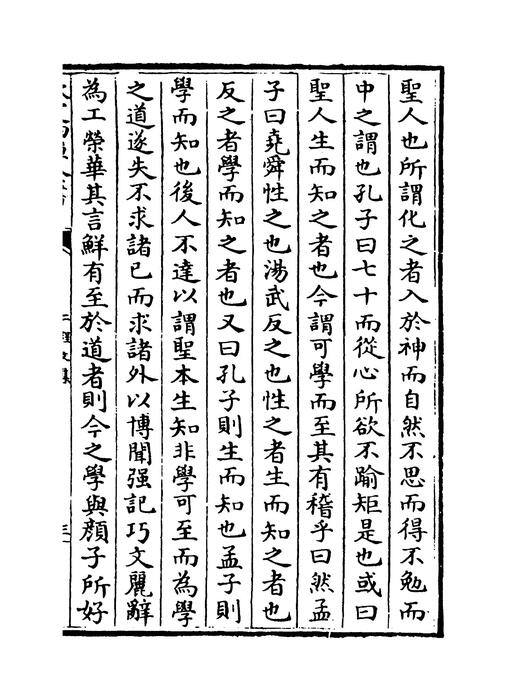 聖人也所謂化之者入於神而自然不思而得不勉而
中之謂也孔子曰七十而從心所欲不踰矩是也或曰
聖人生而知之者也今謂可學而至其有稽乎曰然孟
子曰堯舜性之也湯武反之也性之者生而知之者也
反之者學而知之者也又曰孔子則生而知也孟子則
學而知也後人不達以謂聖本生知非學可至而為學
之道遂失不求諸已而求諸外以博聞强記巧文麗辭
為工榮華其言鮮有至於道者則今之學與顔子所好